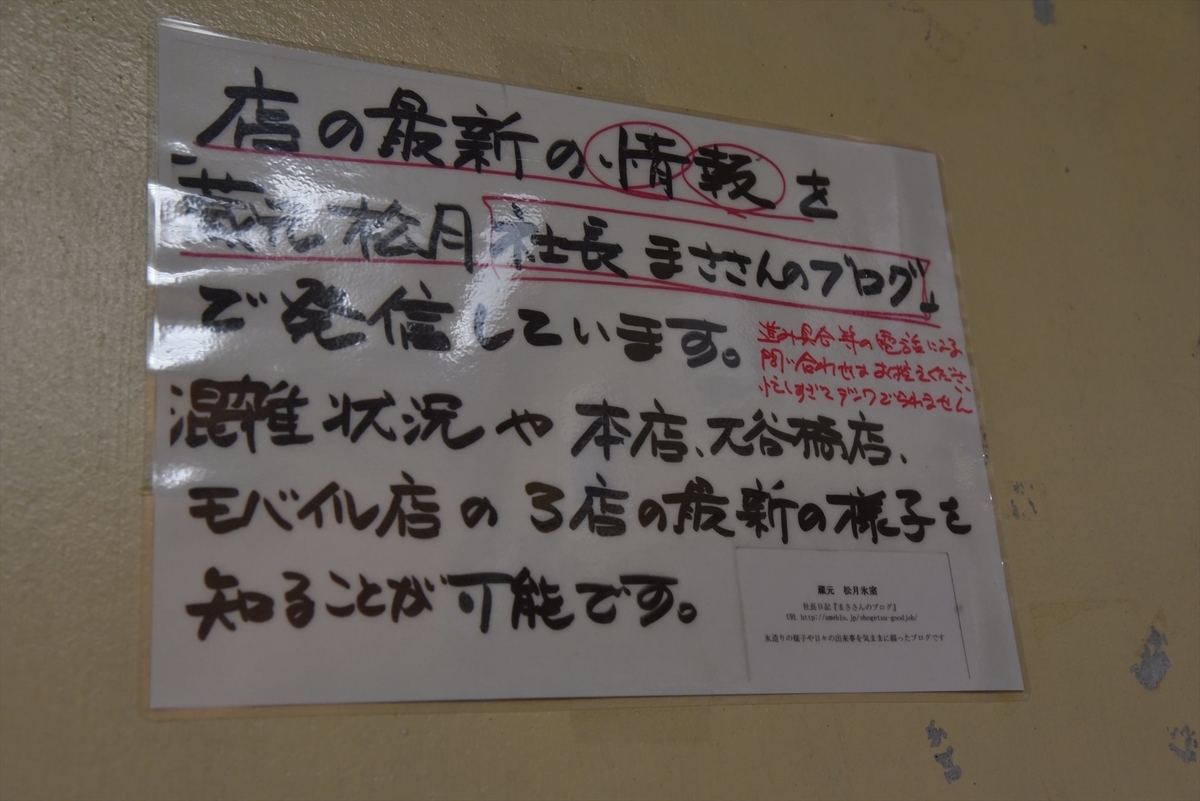 店の最新の情報を
蔵元松月社長まささんのブログ」
で発信しています。
進み具合等の電話による
問い合わせはお控えください
忙しすぎてデンワでられません
混雑状況や本店、大谷橋店、
モバイル店の3店の最新の様子を
知ることが可能です。
蔵元 松月氷室
社長日記『まささんのブログ』
URL http://ameblo.jp/shogetsu-goodjob/
氷造りの様子や日々の出来事を気ままに綴ったブログです